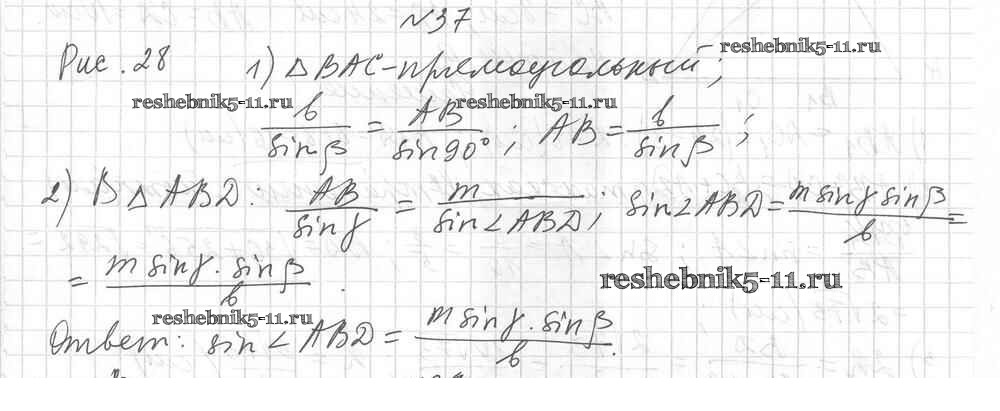 №37
reshebnik5-11.ru
Рис. 28 1) △BAC - прямоугольный;
reshebnik5-11.ru reshebnik5-11.ru
b/sinβ = AB/sin90°; AB = b/sinβ;
2) В △ABD: AB/sinγ = m/sin∠ABD; sin∠ABD = m sinγ sinβ/b =
= m sinγ · sinβ/b.
reshebnik5-11.ru
reshebnik5-11.ru
Ответ: sin∠ABD = m sinγ · sinβ/b.